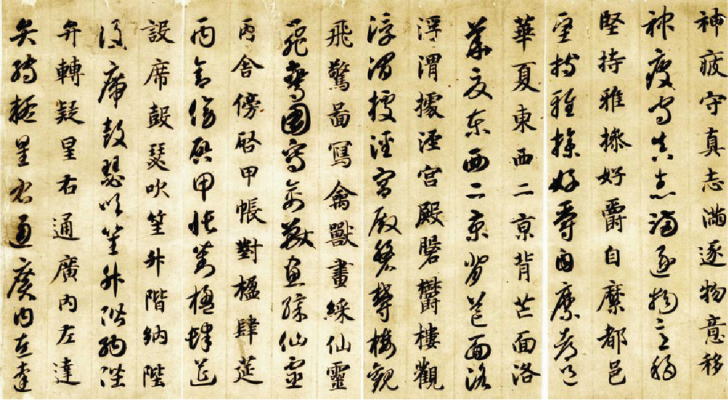 神疲守真志滿逐物意移
神疲守真志滿逐物意移
堅持雅操好爵自縻都邑
堅持雅操好爵自縻都邑
華夏東西二京背芒面洛
華夏東西二京背芒面洛
浮渭據涇宮殿磐欝樓觀
浮渭據涇宮殿磐欝樓觀
飛驚啚寫禽獸畫綵仙靈
飛驚圖寫禽獸畫綵仙靈
丙舍傍啓甲帳對楹肆莚
丙舍傍啓甲帳對楹肆莚
設席鼓瑟吹笙升階納陛
設席鼓瑟吹笙升階納陛
弁轉疑星右通廣內左達
弁轉疑星右通廣內左達